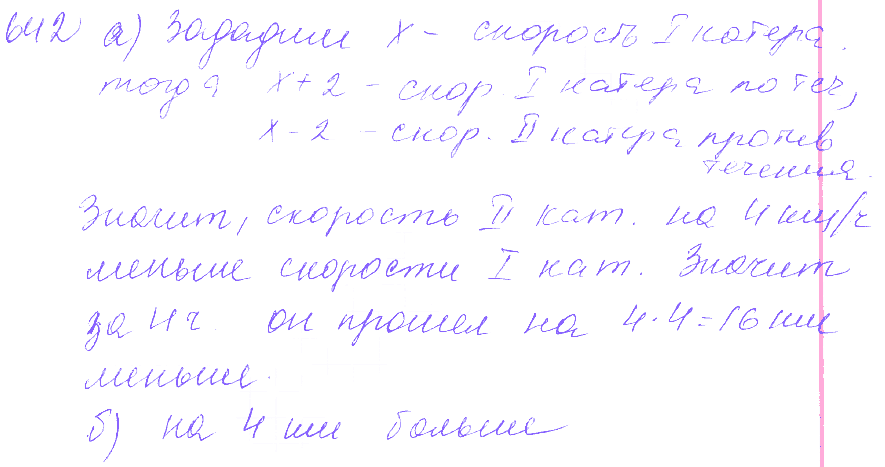 642 а) Зададим х - скорость I катера.
тогда х+2 - скор. I катера по теч,
х-2 - скор. II катера против
течения.
Значит, скорость II кат. на 4 км/ч
меньше скорости I кат. Значит
за 4ч. он прошел на 4·4=16 км
меньше.
б) на 4 км больше